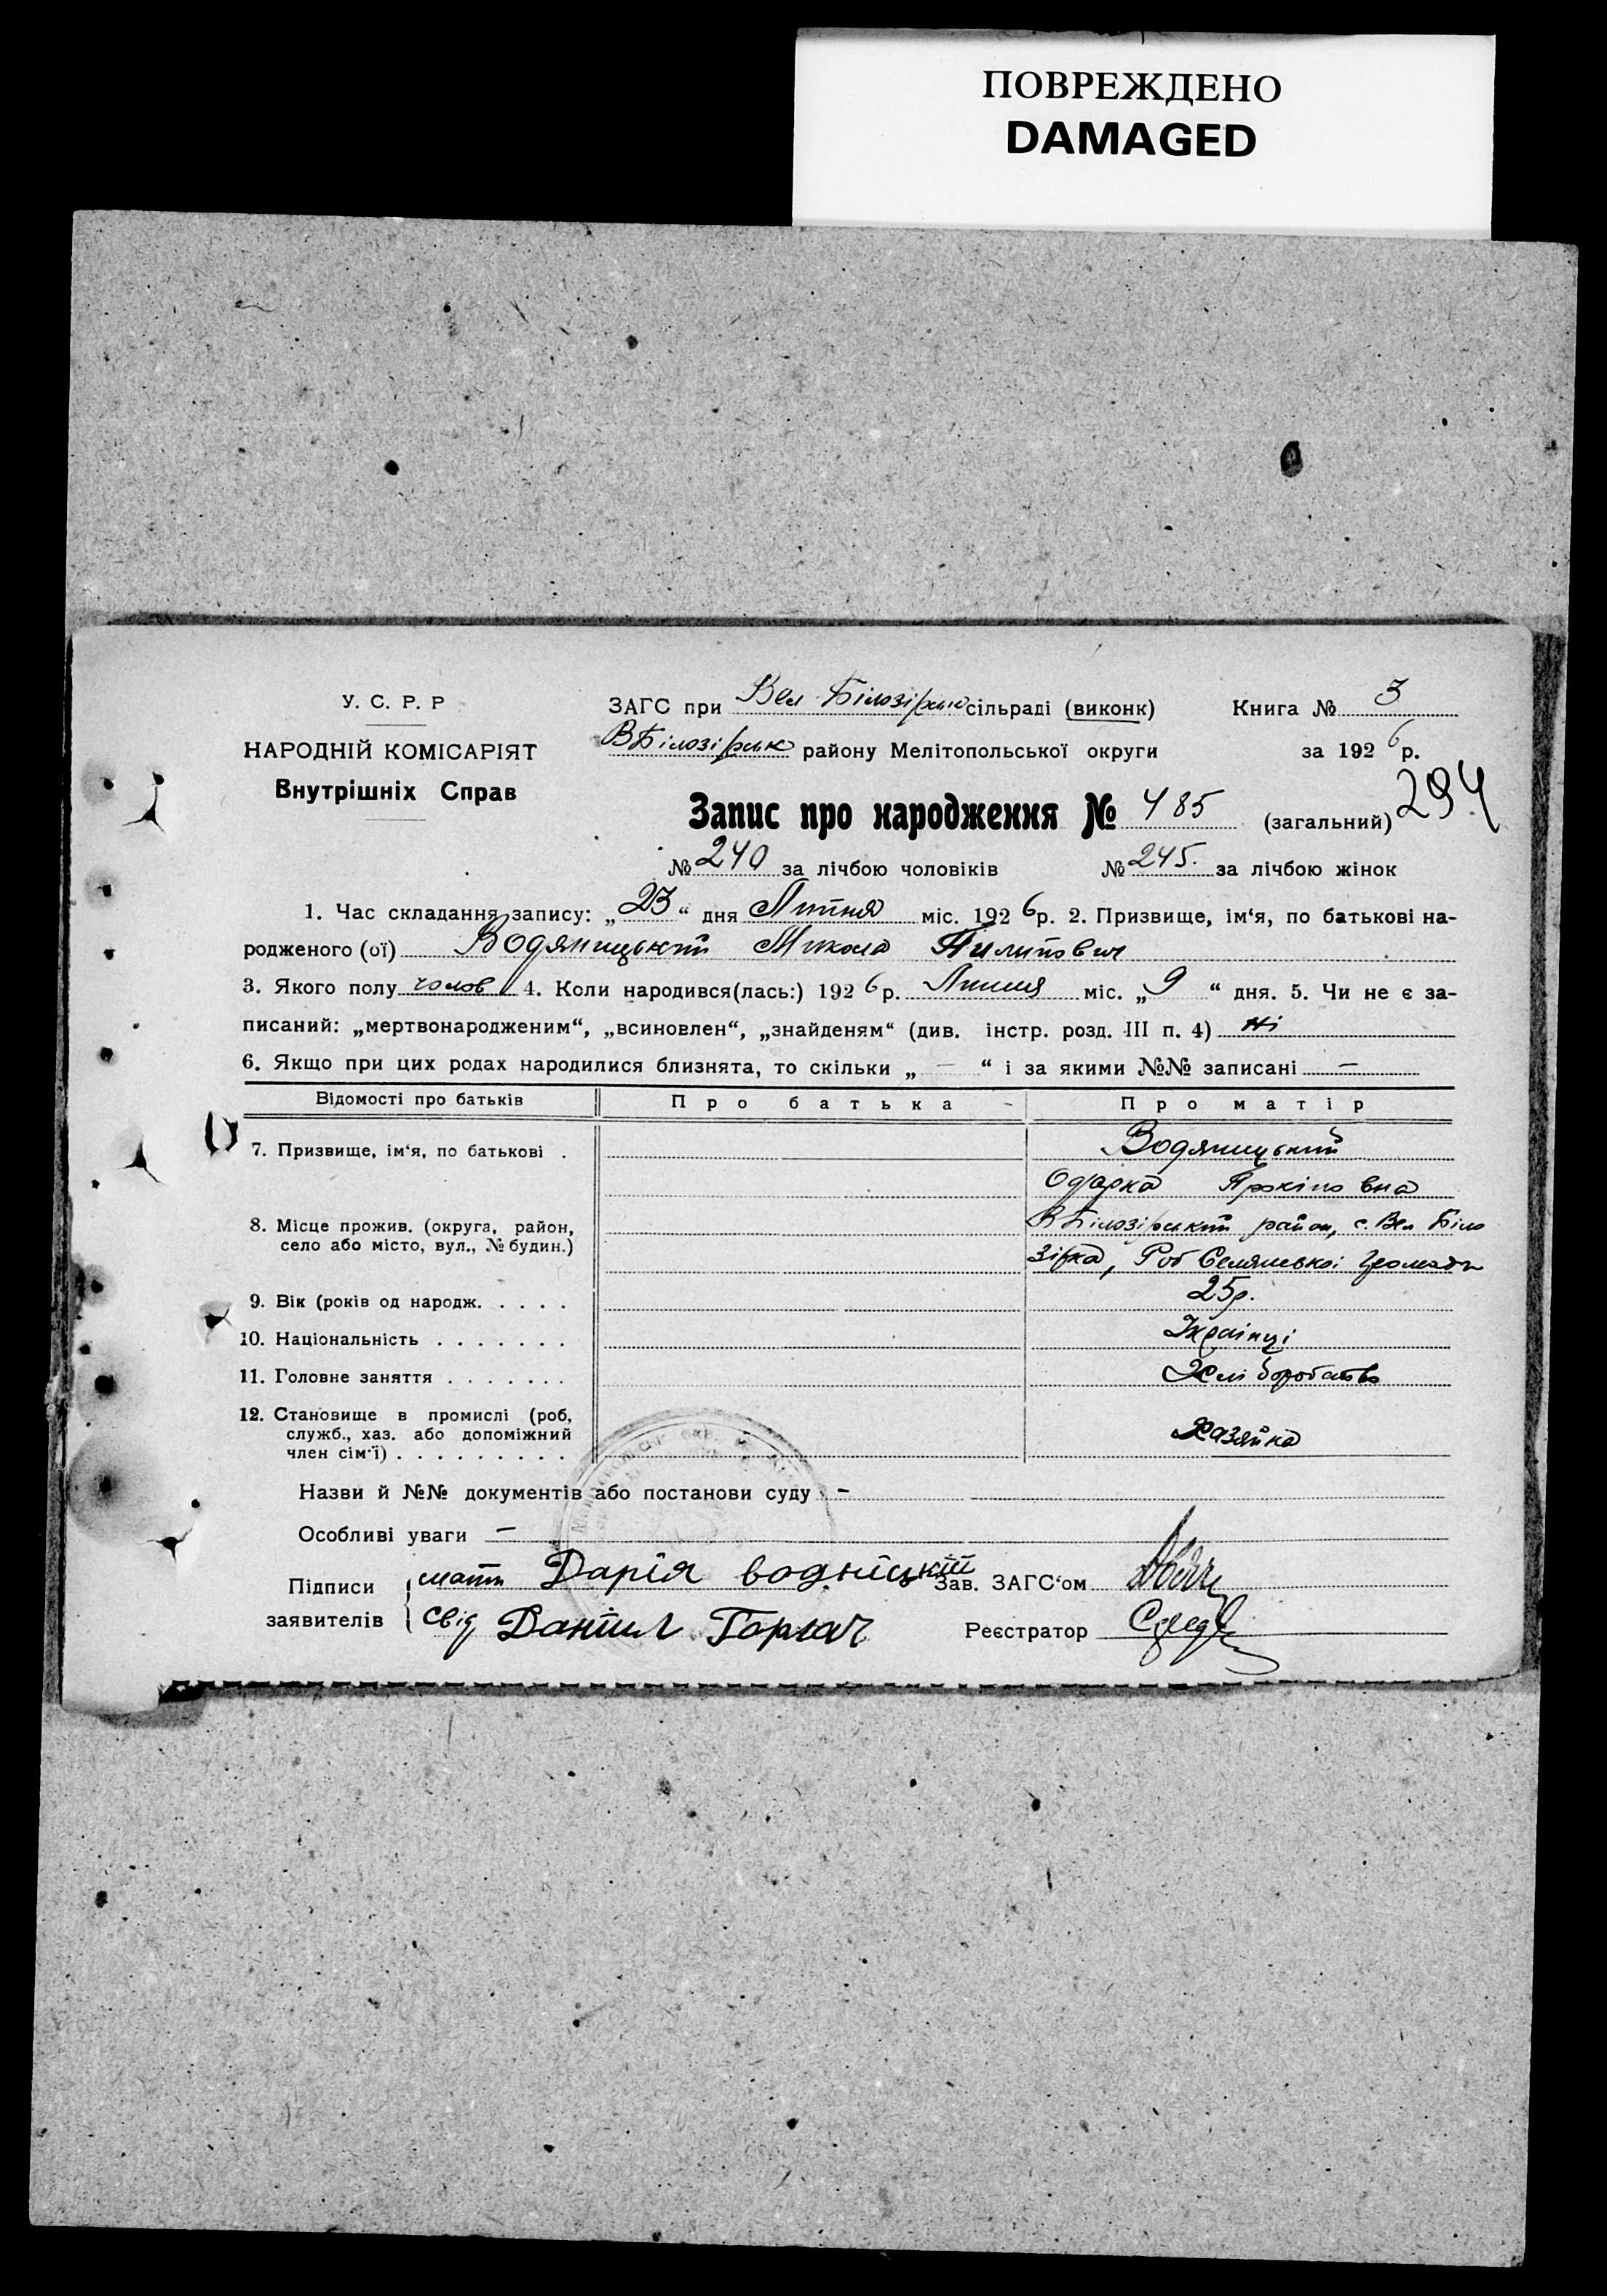 ПОВРЕЖДЕНО
DAMAGED
У. С. Р. Р
НАРОДНІЙ КОМІСАРІЯТ
Внутрішніх Справ
ЗАГС при Вел Білозірк сільраді (виконк)
ВБілозірськ району Мелітопольської округи
Книга № 3
за 1926 р.
294
Запис про народження № 485 (загальний)
№ 240 за лічбою чоловіків № 245. за лічбою жінок
1. Час складання запису: „23“ дня Липня міс. 1926 р. 2. Призвище, ім‘я, по батькові на-
родженого (ої) Водяницький Микола Пилипович
3. Якого полу чолов 4. Коли народився(лась:) 1926 р. Липня міс. „9“ дня. 5. Чи не є за-
писаний: „мертвонародженим“, „всиновлен“, „знайденям“ (див. інстр. розд. III п. 4) Ні
6. Якщо при цих родах народилися близнята, то скільки „ — “ і за якими №№ записані —
Відомості про батьків Про батька Про матір
7. Призвище, ім‘я, по батькові . Водяницький
Одарка Прокіповна
8. Місце прожив. (округа, район, ВБілозірський район, с. Вел Біло
село або місто, вул., № будин.) зірка, Роб Селянської Громади
9. Вік (років од народж. . . . . 25р.
10. Національність . . . . . . . Українці
11. Головне заняття . . . . . . . Хліборобство
12. Становище в промислі (роб,
служб., хаз. або допоміжний Хазяйка
член сім‘ї) . . . . . . . . .
Назви й №№ документів або постанови суду —
Особливі уваги —
Підписи мати Дарія водніцкій Зав. ЗАГС‘ом
заявителів свід Даніил Горкач Реєстратор